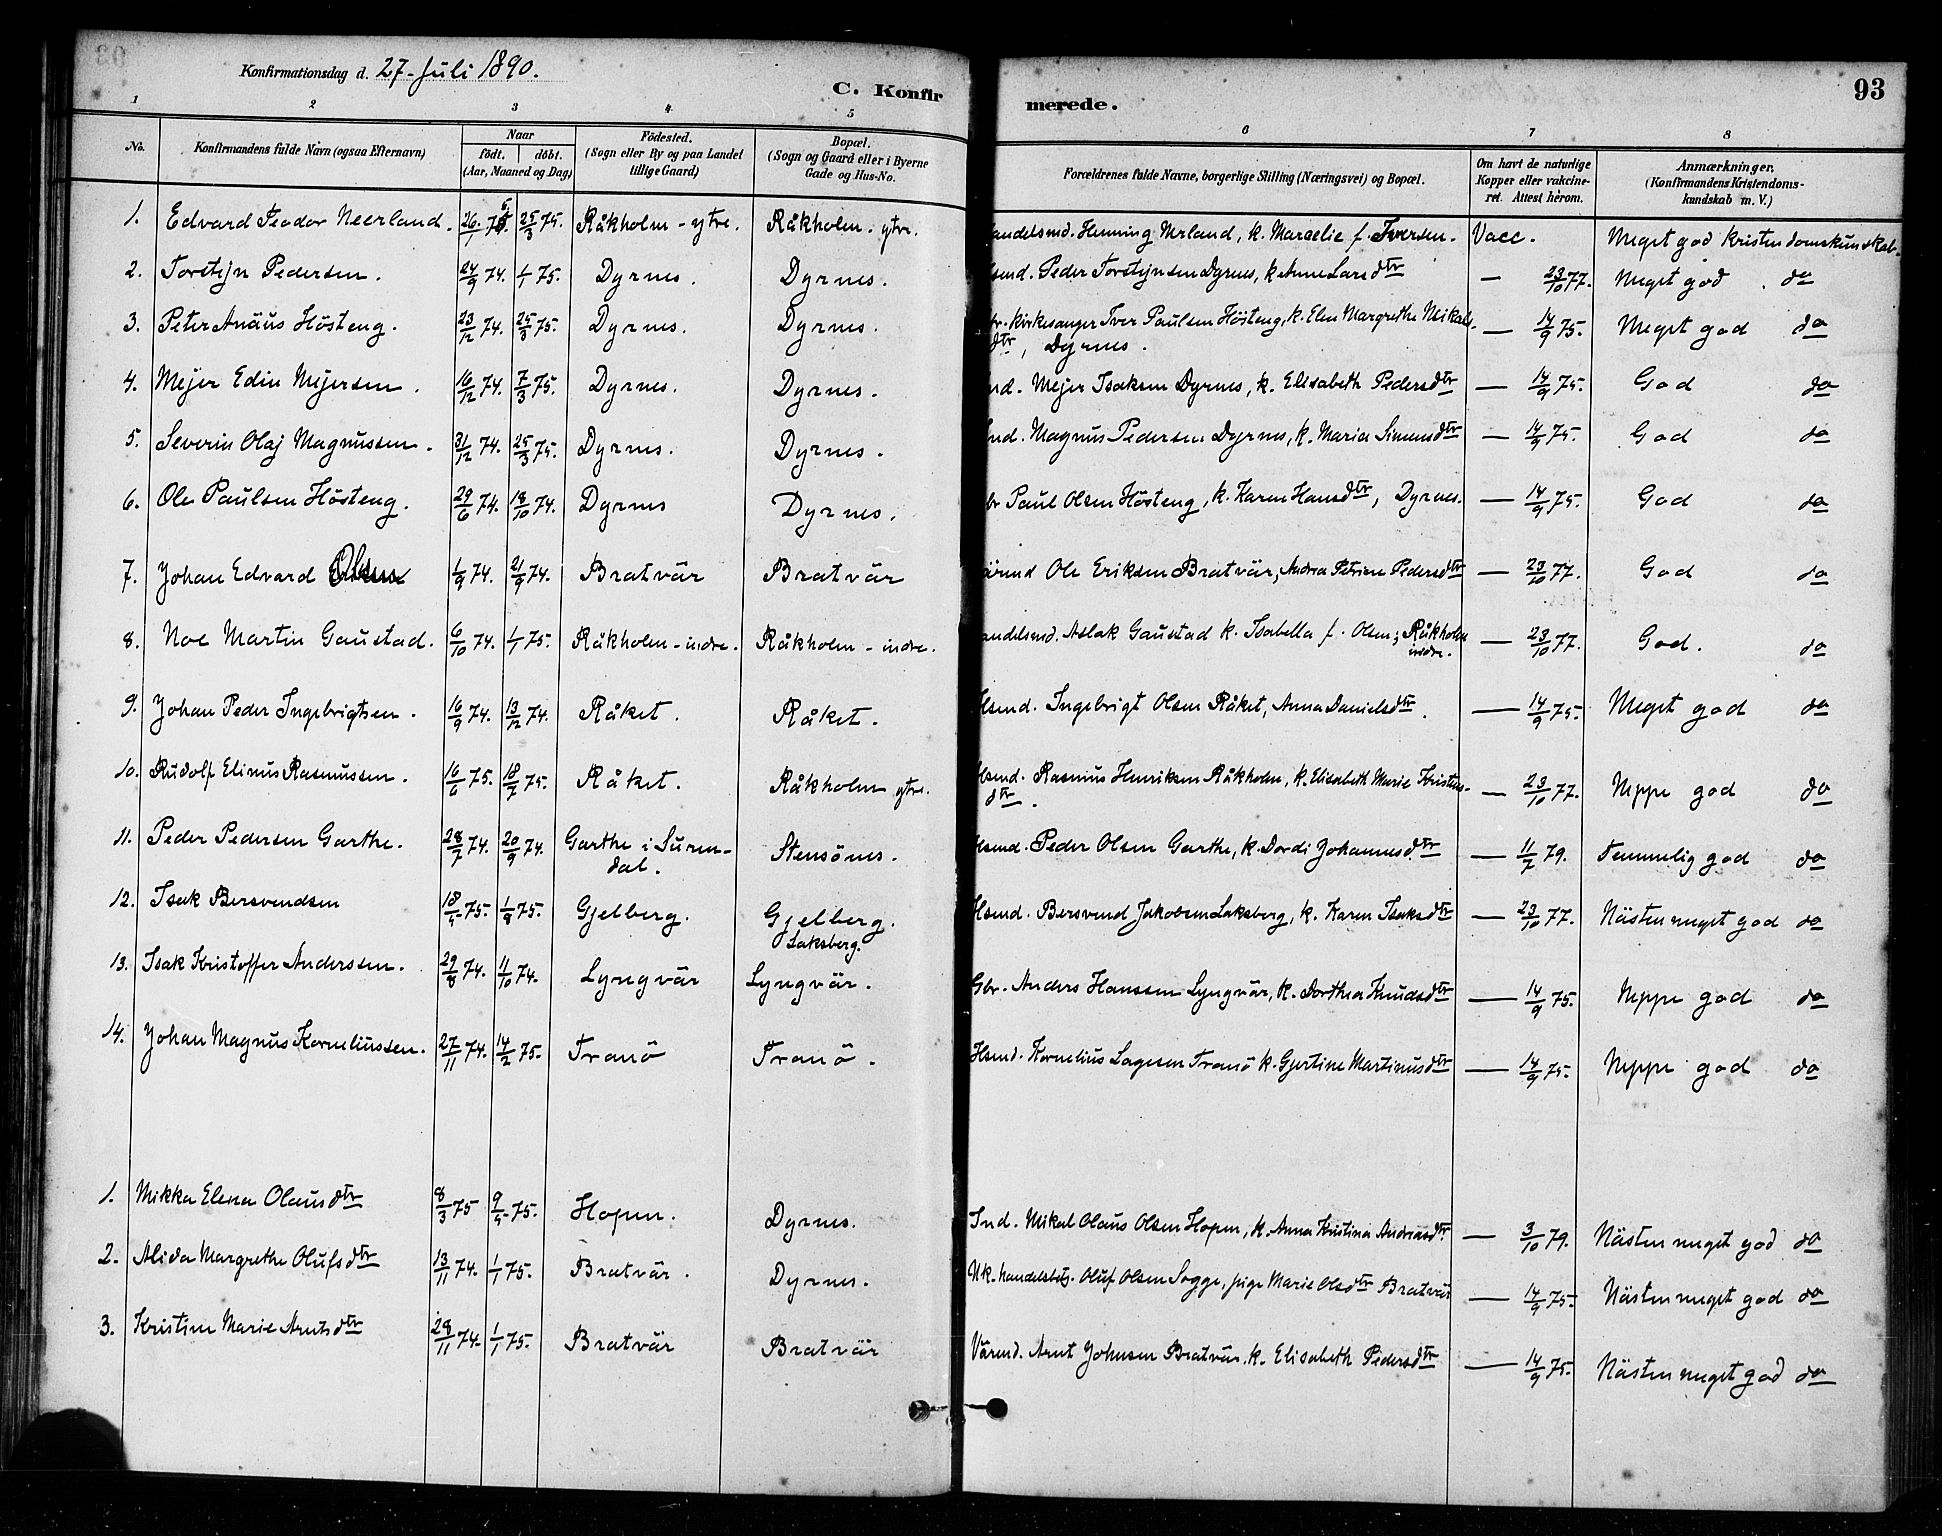 Konfirmationsdag d. 27-Juli 1890.
C. Konfirmerede.
93
1 2 3 4 5 6 7 8
No. Konfirmandens fulde Navn (ogsaa Efternavn) Naar födt. döbt. (Aar, Maaned og Dag) Födested. (Sogn eller By og paa Landet tillige Gaard) Bopæl. (Sogn og Gaard eller i Byerne Gade og Hus-No. Forældrenes fulde Navne, borgerlige Stilling (Næringsvei) og Bopæl. Om havt de naturlige Kopper eller vakcineret. Attest herom. Anmærkninger. (Konfirmandens Kristendomskundskab m. V.)
1. Edvard Teodor Neerland. 26/1 75. 25/3 75. Råkholm - ytre. Råkholm - ytre. andelsmd. Henning Nerland, k. Marcelie f. Iversen. Vacc. Meget god Kristendomskundskab.
2. Torstejn Pedersen. 24/9 74. 1/1 75. Dyrnes. Dyrnes. Hsmd. Peder Torstejnsen Dyrnes, k. Anne Larsdtr — 23/10 77. Meget god do
3. Peter Anäus Hösteng. 23/12 74. 25/3 75. Dyrnes. Dyrnes. Gbr. Kirkesanger Iver Paulsen Hösteng, k. Elen Margrethe Mikals- — 14/9 75. Meget god do
dtr, Dyrnes.
4. Mejer Edin Mejersen. 16/12 74. 7/3 75. Dyrnes. Dyrnes. Ind. Mejer Isaksen Dyrnes, k. Elisabeth Pedersdtr — 14/9 75. God do
5. Severin Olaj Magnussen. 31/12 74. 25/3 75. Dyrnes. Dyrnes. Ind. Magnus Pedersen Dyrnes, k. Maria Simonsdtr — 14/9 75. God do
6. Ole Paulsen Hösteng. 29/6 74. 18/10 74. Dyrnes Dyrnes. Gbr Paul Olsen Hösteng, k. Karen Hansdtr, Dyrnes. — 14/9 75. God do
7. Johan Edvard Olsen 1/9 74. 21/9 74. Bratvär Bratvär Värmd Ole Eriksen Bratvär, Andrea Petrine Pedersdtr — 23/10 77. God do
8. Noe Martin Gaustad. 6/10 74. 1/1 75. Råkholm - indre. Råkholm - indre. andelsmd. Aslak Gaustad k. Isabella f. Olsen, Råkholm indre. — 23/10 77. God. do
9. Johan Peder Ingebrigtsen. 16/9 74. 13/12 74. Råket. Råket. Hsmd. Ingebrigt Olsen Råket, Anna Danielsdtr. — 14/9 75. Meget god do
10. Rudolf Elinus Rasmussen. 16/6 75. 18/7 75. Råket. Råkholm ytre. Hsmd. Rasmus Henriksen Råkholm, k. Elisabeth Marie Kristens- — 23/10 77. Neppe god do
dtr.
11. Peder Pedersen Garthe. 28/7 74. 20/9 74. Garthe i Surendal. Stensönes. Hsmd. Peder Olsen Garthe, k. Dordi Johannesdtr — 11/7 79. Temmelig god do
12. Isak Bersvendsen 18/5 75. 1/8 75. Gjelberg. Gjelberg. Laksberg. Hsmd. Bersvend Jakobsen Laksberg, k. Karen Isaksdtr — 23/10 77. Nästen meget god do
13. Isak Kristoffer Anderssen. 29/8 74. 11/10 74. Lyngvär Lyngvär. Gbr. Anders Hanssen Lyngvär, k. Dorthea Knudsdtr — 14/9 75. Neppe god do
14. Johan Magnus Korneliussen. 27/11 74. 14/2 75. Tranö Tranö. Hsmd. Kornelius Lagesen Tranö k. Gjertine Martinusdtr — 14/9 75. Neppe god do
1. Mikka Elena Olausdtr 8/3 75 9/5 75. Hopen. Dyrnes. Ind. Mikal Olaus Olsen Hopen, k. Anna Kristina Andreasdtr — 3/10 79. Nästen meget god do
2. Alida Margrethe Olufsdtr 13/11 74. 1/1 75. Bratvär. Dyrnes. Uk. handelsbtj. Oluf Olsen Sogge, pige Marie Olsdtr Bratvär — 14/9 75. Nästen meget god do
3. Kristine Marie Arntsdtr 28/11 74. 1/1 75. Bratvär Bratvär Värmd. Arnt Johnsen Bratvär, k. Elisabeth Pedersdtr — 14/9 75. Nästen meget god do